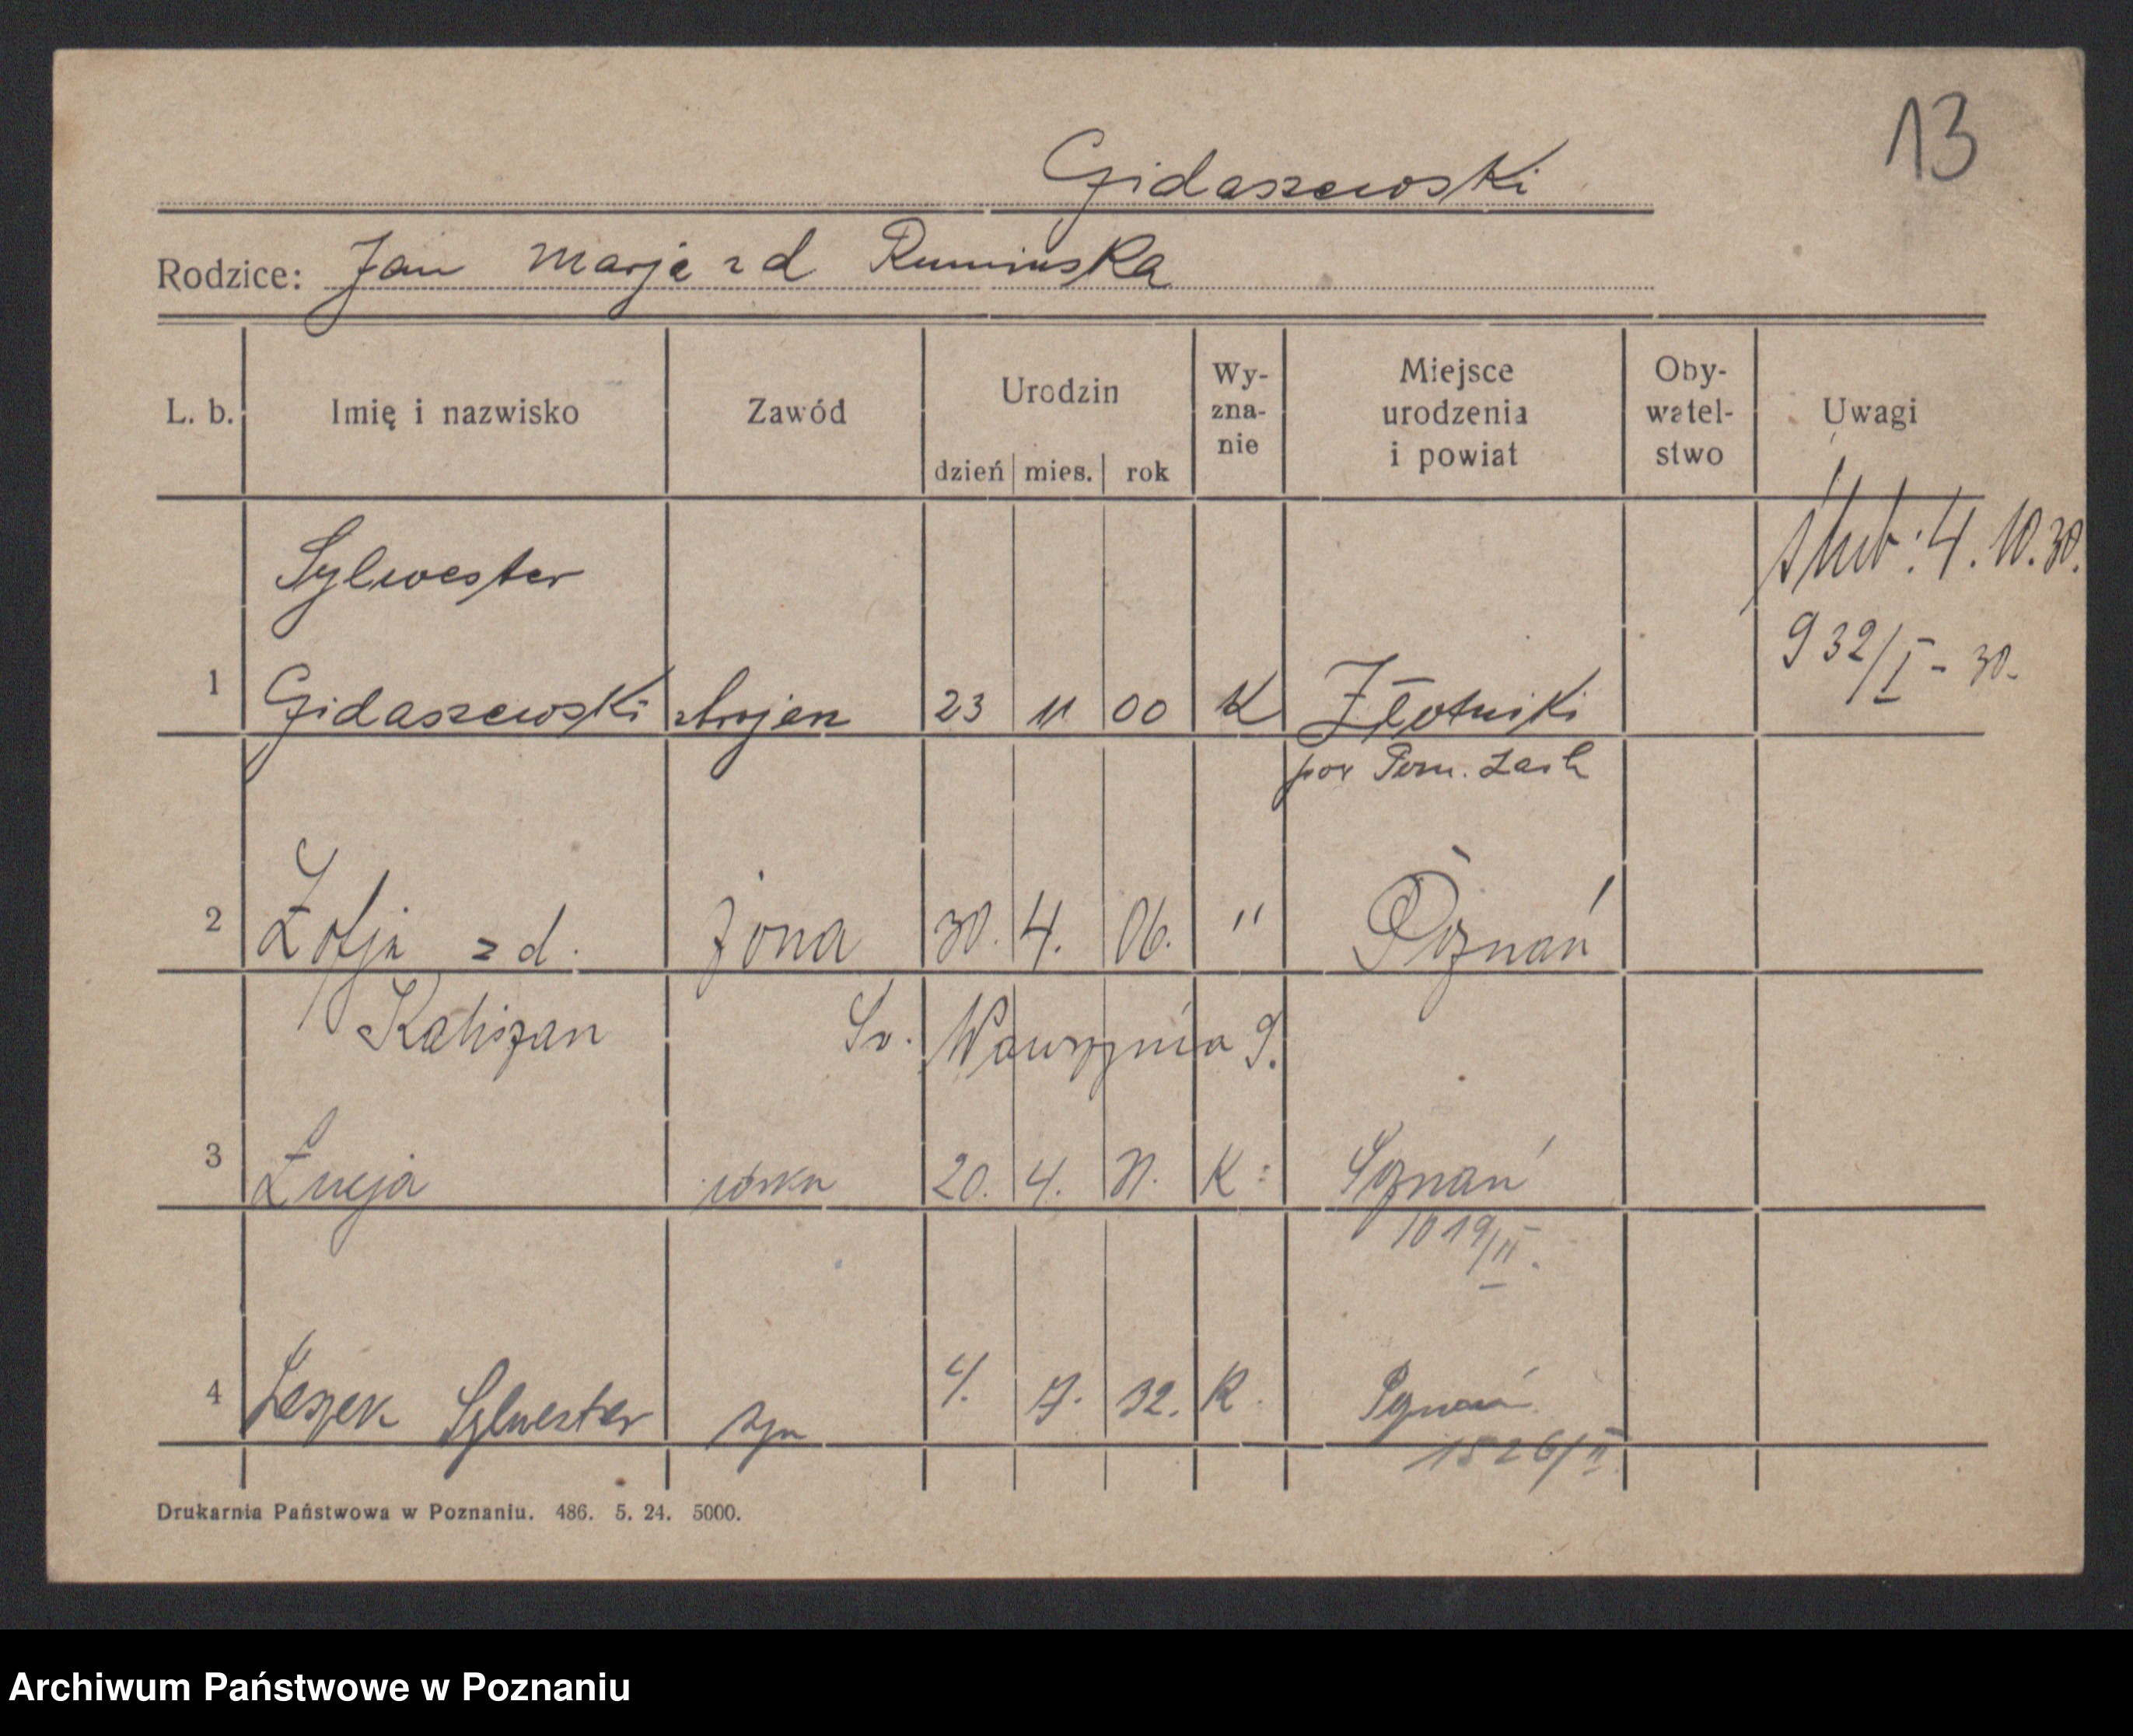 13
Gidaszewski
Rodzice: Jan Marja z d Rumińska
L. b. Imię i nazwisko Zawód Urodzin dzień mies. rok Wy-zna-nie Miejsce urodzenia i powiat Oby-watel-stwo Uwagi
ślub: 4. 10. 30.
Sylwester
932/I - 30.
1 Gidaszewski 23 11 00 K Złotniki
pow Pozn. Zach
2 Zofja z d. żona 30. 4. 06. " Poznań
Św. Wawrzyńca 9.
3 Łucja córka 20. 4. 31. K: Poznań
1019/II.
4 Leszek Sylwester syn 4. 7. 32. K. Poznań
1526/II
Drukarnia Państwowa w Poznaniu. 486. 5. 24. 5000.
Archiwum Państwowe w Poznaniu